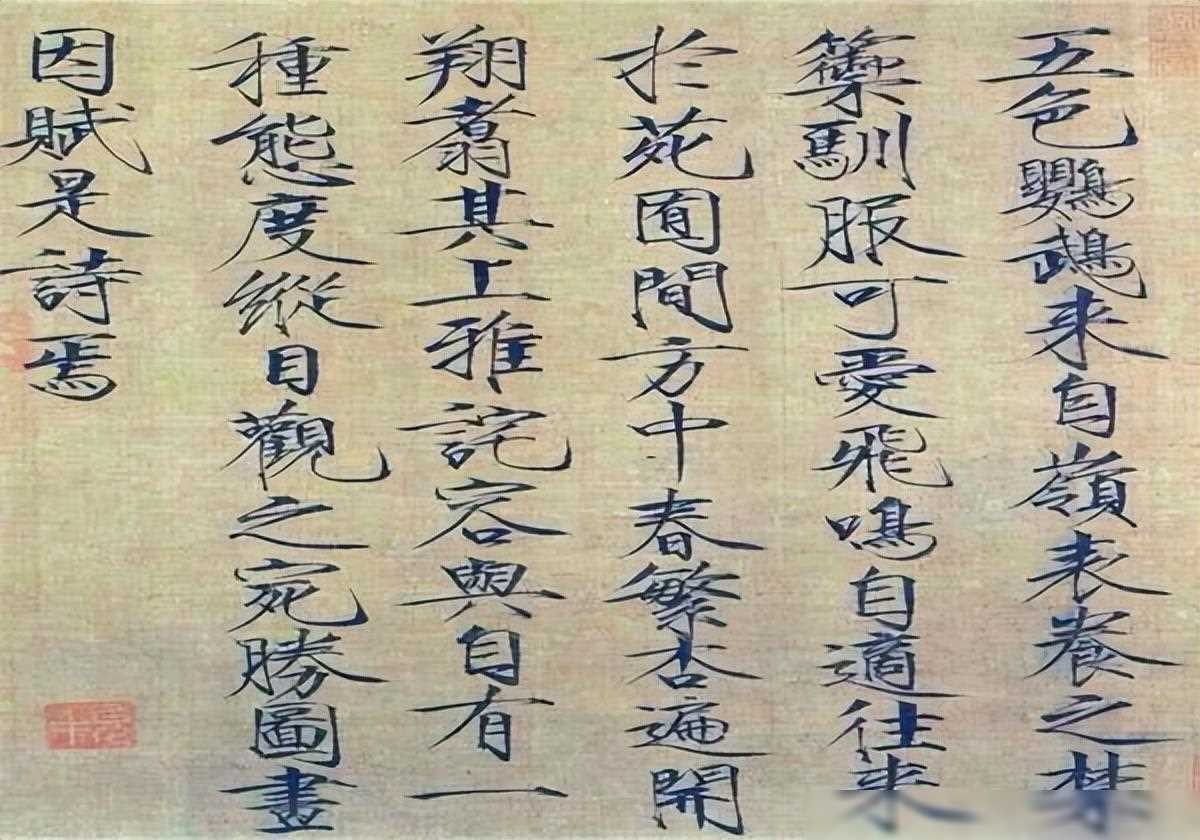 五色鸚鵡来自嶺表養之禁
籞馴服可愛飛鳴自適往来
扵苑囿間方中春繁杏遍開
翔翥其上雅詫容與自有一
種態度縱目觀之宛勝圖畫
因賦是詩焉